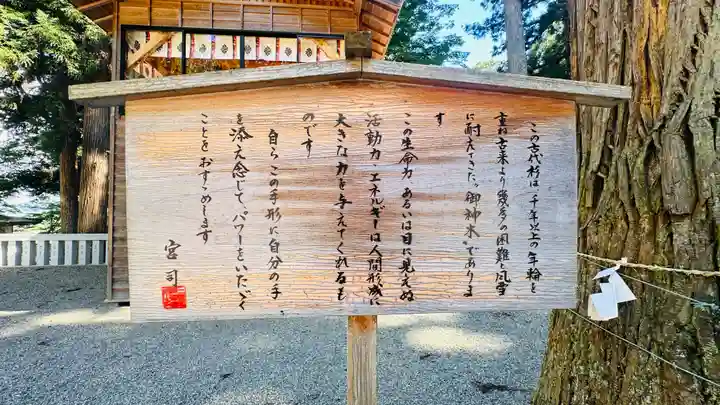 この古代杉は、一千年以上の年輪を
重ね古来より幾多の困難と風雪
に耐えてきた〝御神木〟でありま
す
この生命力、あるいは目に見えぬ
活動力、エネルギーは人間形成に
大きな力を与えてくれるも
のです
自らこの手形に自分の手
を添え念じて、パワーをいただく
ことをおすすめします
宮司